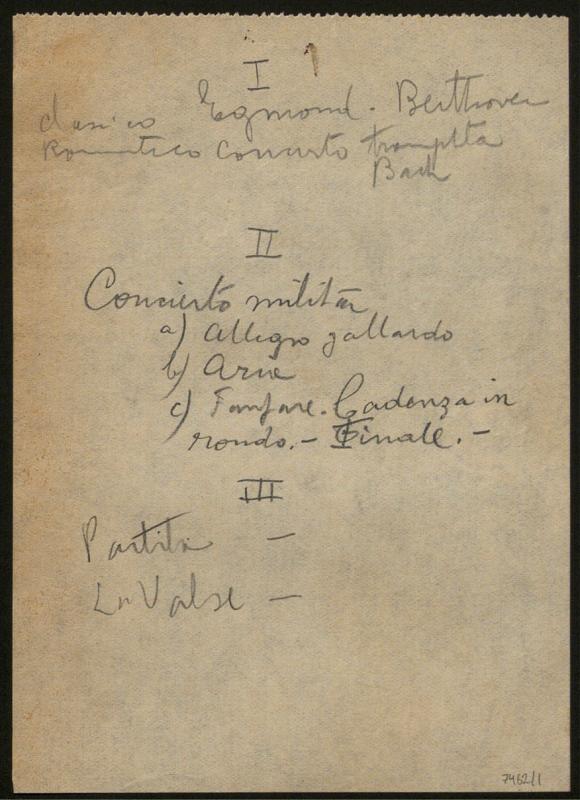 I
Egmond. Beethoven
clasico
Romantico Concierto trompeta
Bach
II
Concierto militar
a) Allegro gallardo
b) Aria
c) Fanfare. Cadenza in
rondo.- Finale.-
III
Partita -
La Valse -
7462/1